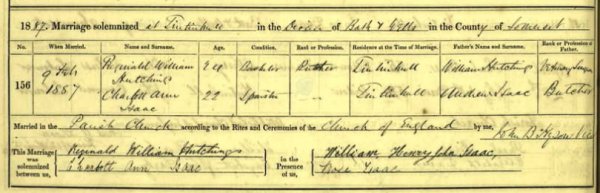 1887. Marriage solemnized at Tintinhull in the Diocese of Bath & Wells in the County of Somerset
No. When Married. Name and Surname. Age. Condition. Rank or Profession. Residence at the Time of Marriage. Father's Name and Surname. Rank or Profession of Father.
156 9 Feb 1887 Reginald William Hutchings Bachelor Butcher Tintinhull William Hutchings Veterinary Surgeon
Charlott Ann Isaac 22 Spinster – Tintinhull Andrew Isaac Butcher
Married in the Parish Church according to the Rites and Ceremonies of the Church of England by me, John B
This Marriage was solemnized between us, Reginald William Hutchings In the Presence of us, William Henry John Isaac,
Charlott Ann Isaac Rose Isaac